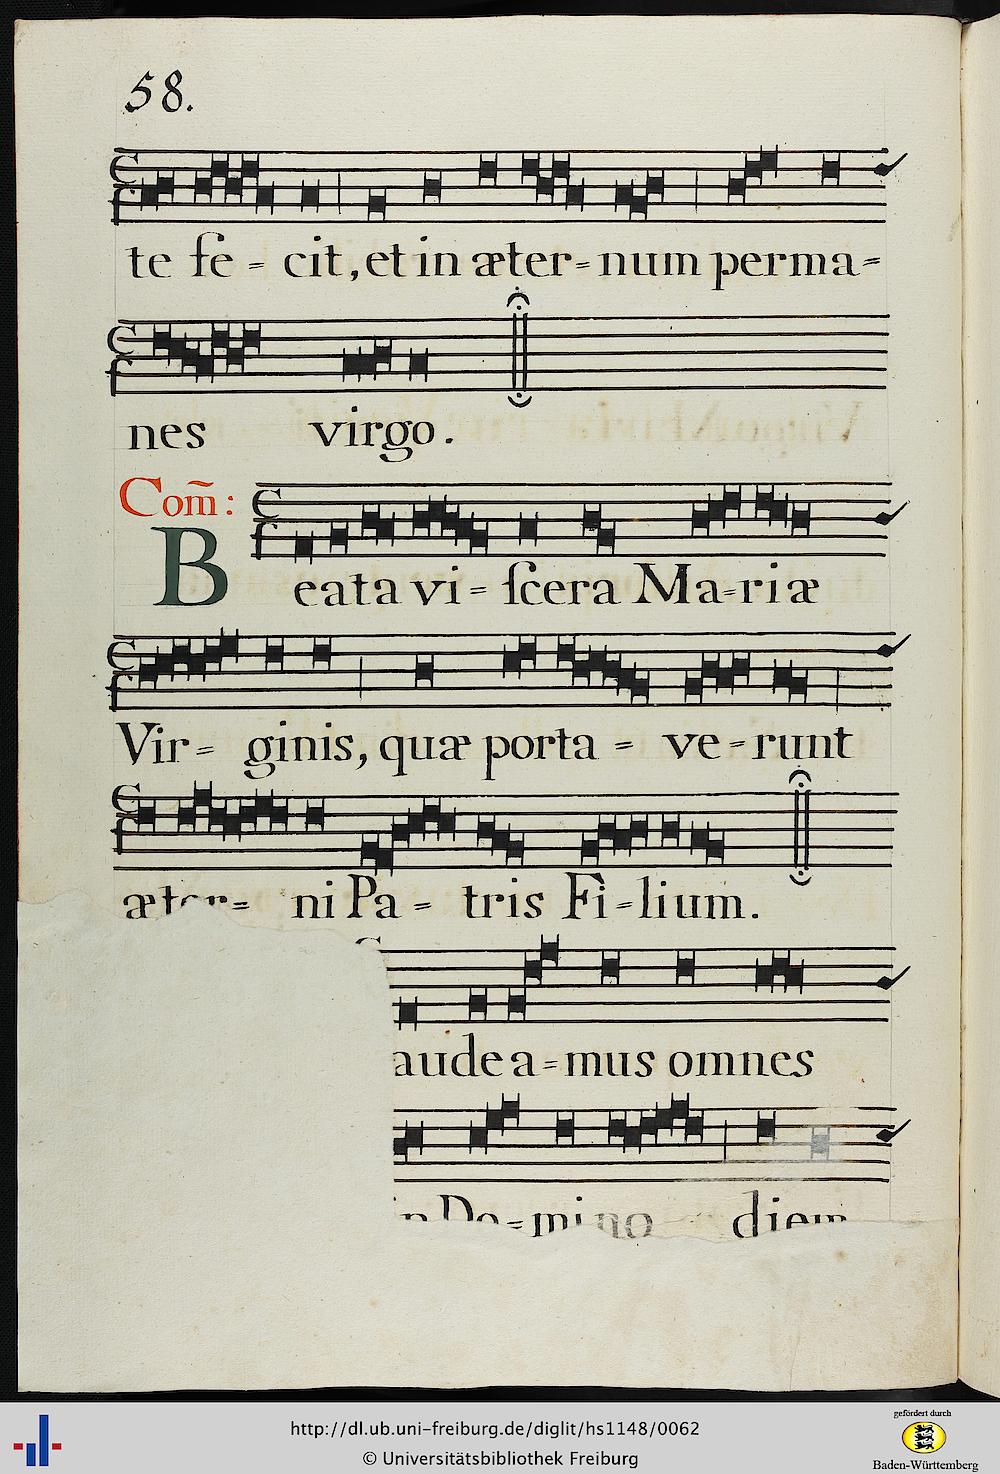 58.
te fe = cit, et in æter = num perma =
nes virgo.
Com̃:
Beata vi = ſcera Ma = riæ
Vir = ginis, quæ porta = ve = runt
æter = ni Pa = tris Fi = lium.
audea = mus omnes
in Do = mino diem
http://dl.ub.uni-freiburg.de/diglit/hs1148/0062
© Universitätsbibliothek Freiburg
gefördert durch
Baden-Württemberg